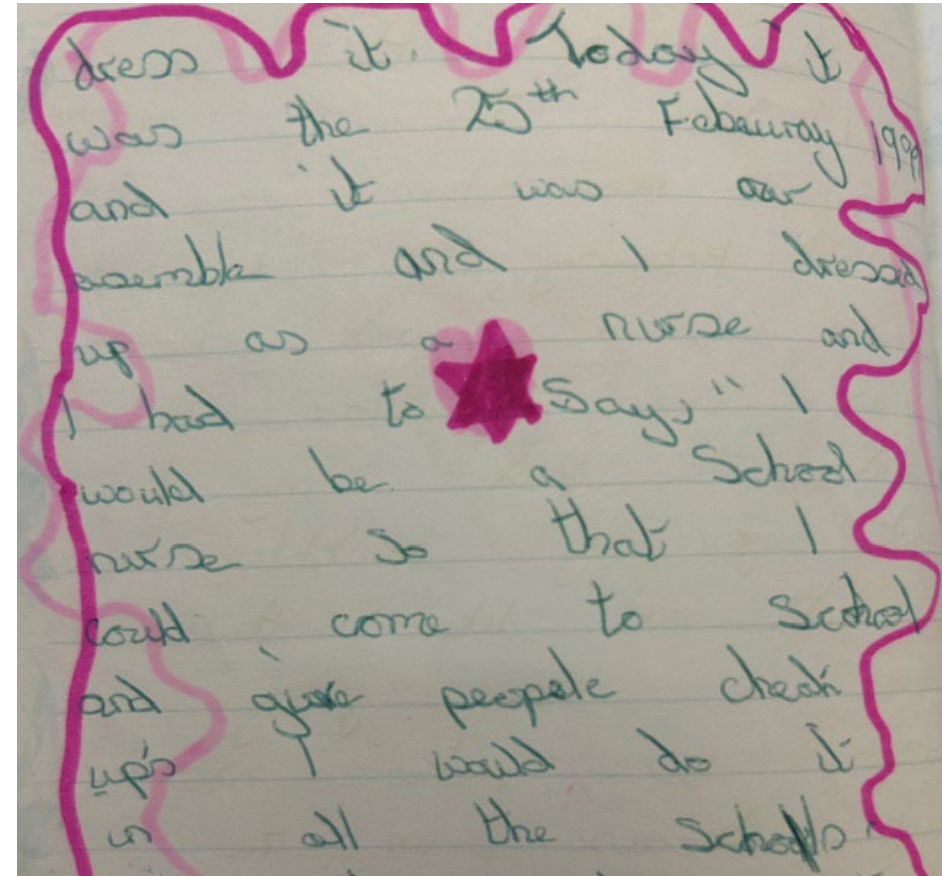 dress it. Today it
was the 25th Febeuray 1999
and it was our
asemble and I dressed
up as a nurse and
I had to Say," I
would be a School
nurse so that I
could come to School
and give peopele cheak
up's I would do it
in all the Schools.